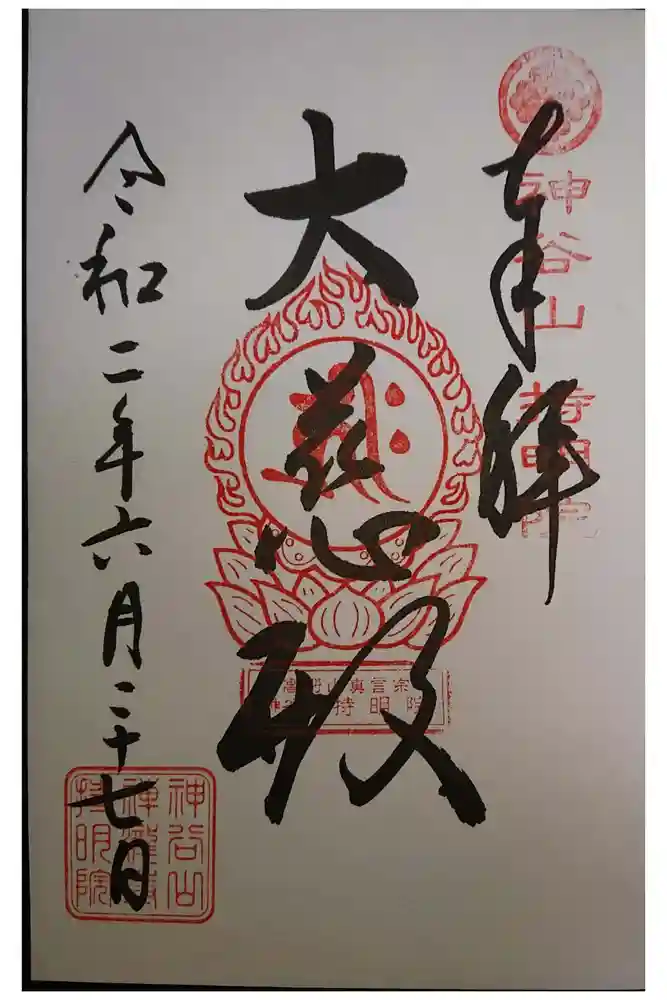 奉拝
神谷山 持明院
大慈殿
高野山真言宗
神谷山 持明院
令和二年六月二十七日
神谷山
持明院